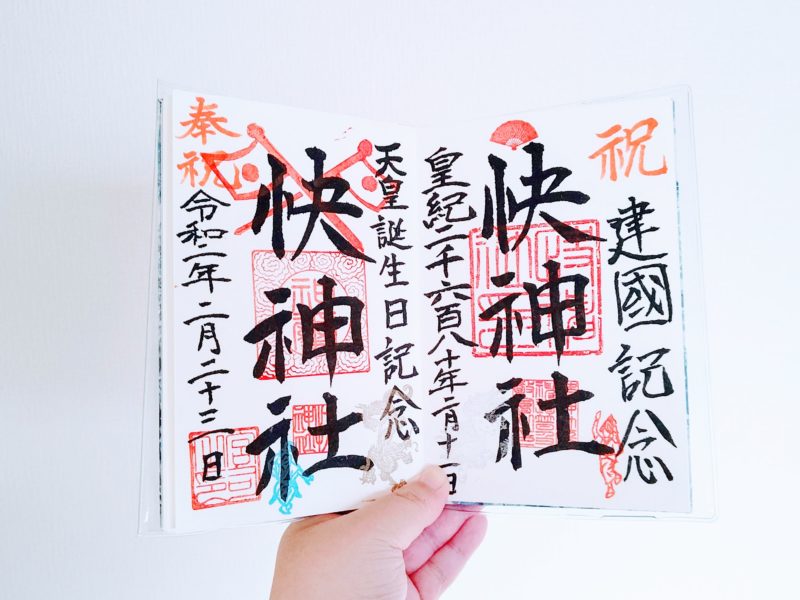 祝
建國記念
快神社
皇紀二千六百八十年二月十一日
天皇誕生日記念
快神社
奉祝
令和二年二月二十三日